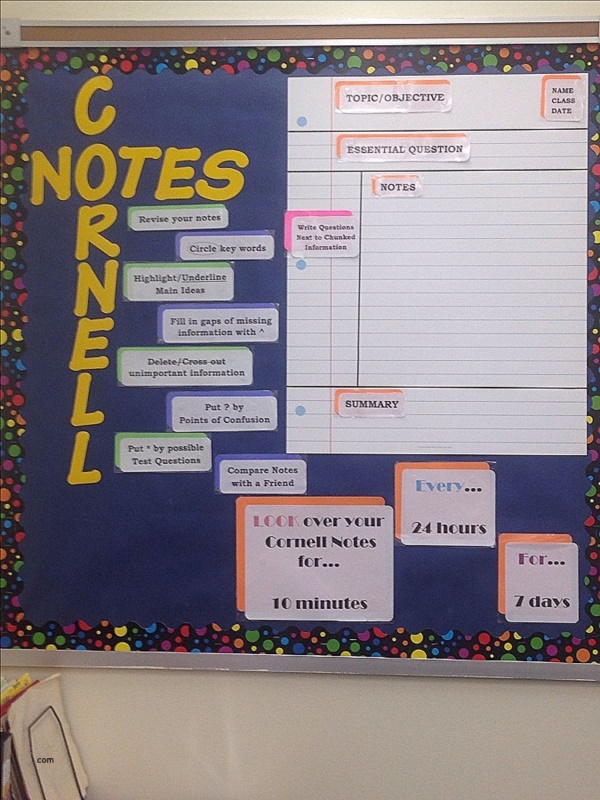 CORNELL
NOTES
Revise your notes
Circle key words
Highlight/Underline
Main Ideas
Fill in gaps of missing
information with ^
Delete/Cross out
unimportant information
Put ? by
Points of Confusion
Put * by possible
Test Questions
Compare Notes
with a Friend
TOPIC/OBJECTIVE
NAME
CLASS
DATE
ESSENTIAL QUESTION
NOTES
Write Questions
Next to Chunked
Information
SUMMARY
LOOK over your
Cornell Notes
for...
10 minutes
Every...
24 hours
For...
7 days
com